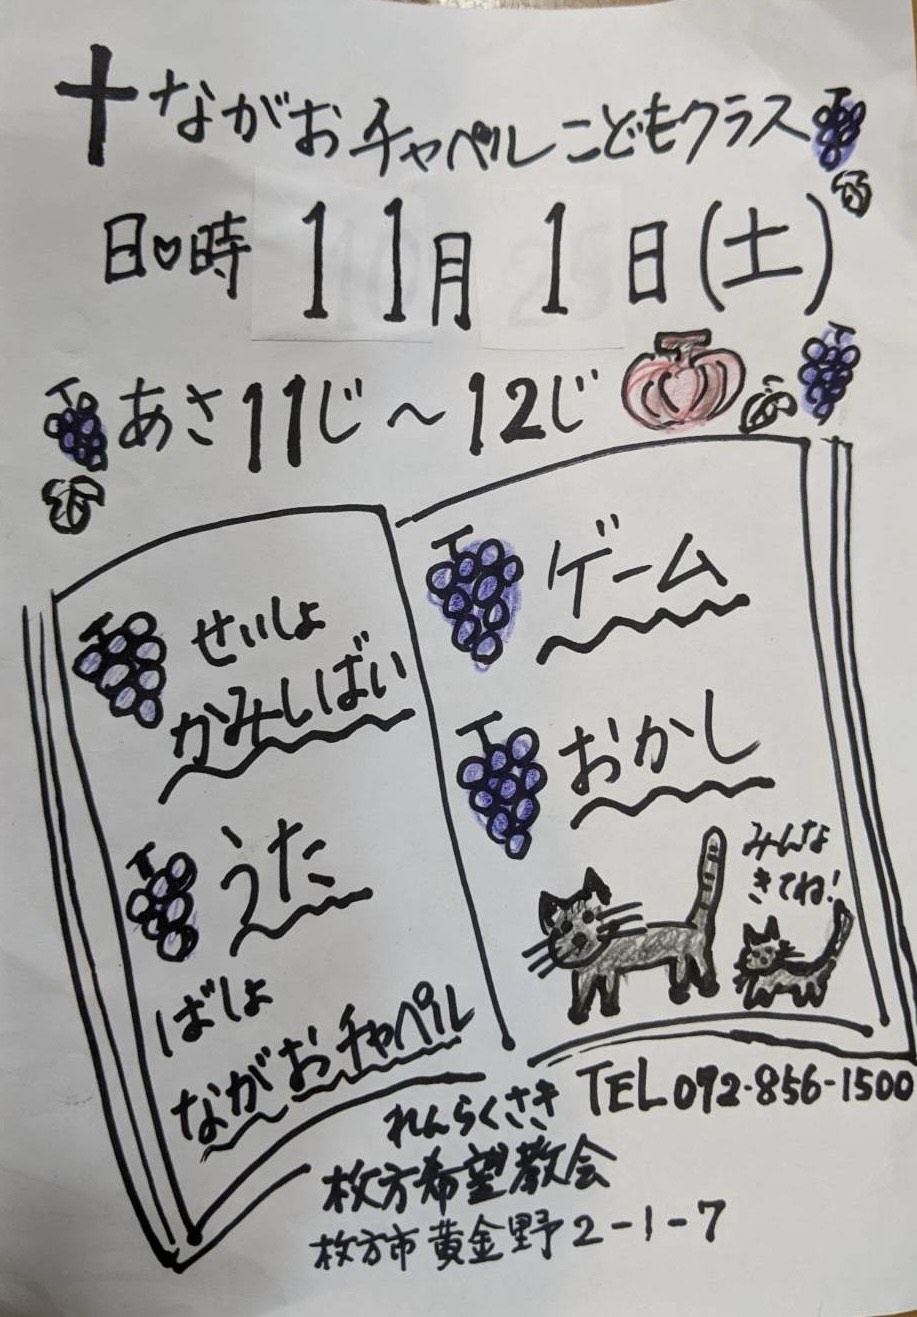 ながおチャペルこどもクラス
日♥時 11月 1日(土)
あさ11じ～12じ
せいしょ
かみしばい
うた
ばしょ
ながおチャペル
ゲーム
おかし
みんな
きてね!
れんらくさき TEL092-856-1500
枚方希望教会
枚方市黄金野2-1-7